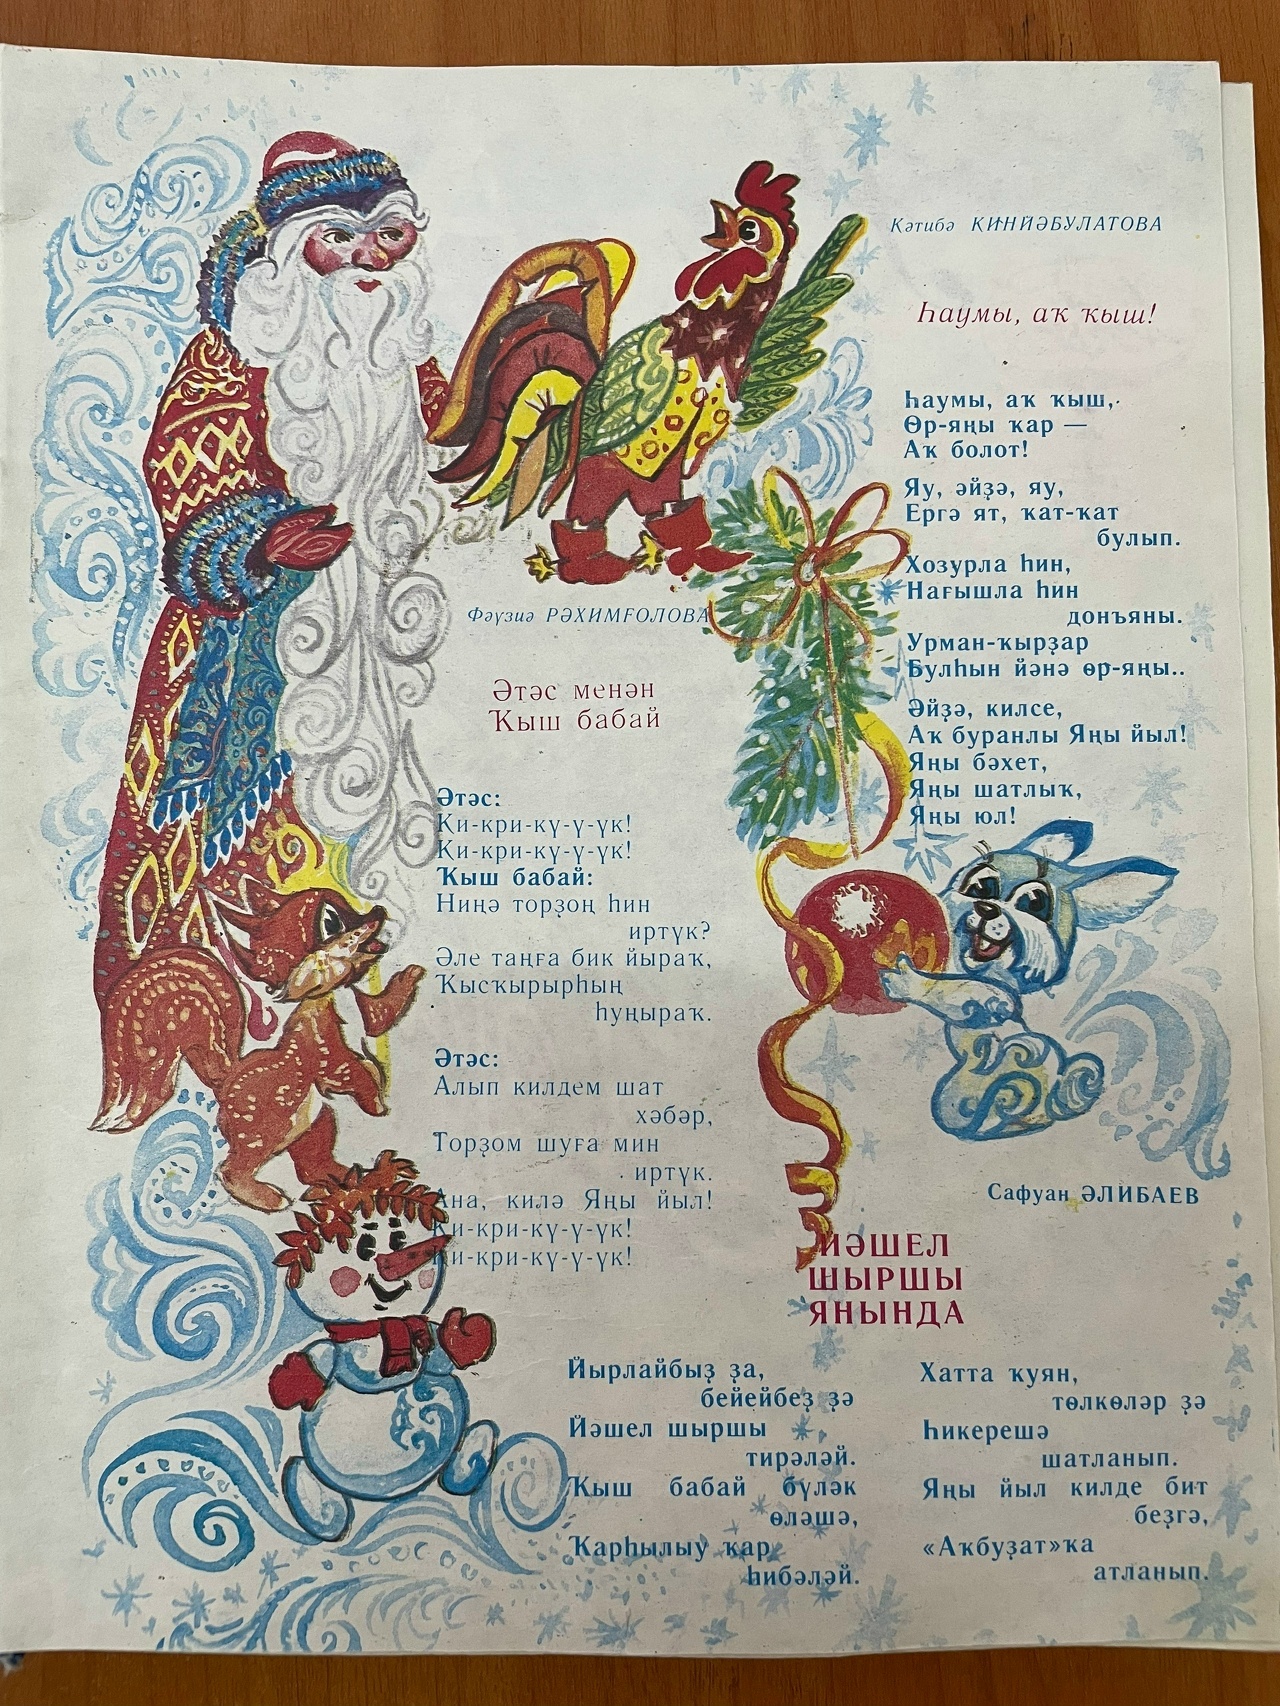 Кәтибә КИНЙӘБУЛАТОВА
Һаумы, аҡ ҡыш!
Һаумы, аҡ ҡыш,
Өр-яңы ҡар —
Аҡ болот!
Яу, әйҙә, яу,
Ергә ят, ҡат-ҡат
булып.
Хозурла һин,
Нағышла һин
донъяны.
Урман-ҡырҙар
Булһын йәнә өр-яңы..
Әйҙә, килсе,
Аҡ буранлы Яңы йыл!
Яңы бәхет,
Яңы шатлыҡ,
Яңы юл!
Фәүзиә РӘХИМҒОЛОВА
Әтәс менән
Ҡыш бабай
Әтәс:
Ки-кри-кү-ү-үк!
Ки-кри-кү-ү-үк!
Ҡыш бабай:
Ниңә торҙоң һин
иртүк?
Әле таңға бик йыраҡ,
Ҡысҡырырһың
һуңыраҡ.
Әтәс:
Алып килдем шат
хәбәр,
Торҙом шуға мин
иртүк.
Ана, килә Яңы йыл!
Ки-кри-кү-ү-үк!
Ки-кри-кү-ү-үк!
Сафуан ӘЛИБАЕВ
ЙӘШЕЛ
ШЫРШЫ
ЯНЫНДА
Йырлайбыҙ ҙа,
бейейбеҙ ҙә
Йәшел шыршы
тирәләй.
Ҡыш бабай бүләк
өләшә,
Ҡарһылыу ҡар
һибәләй.
Хатта ҡуян,
төлкөләр ҙә
Һикерешә
шатланып.
Яңы йыл килде бит
беҙгә,
«Аҡбуҙат»ҡа
атланып.